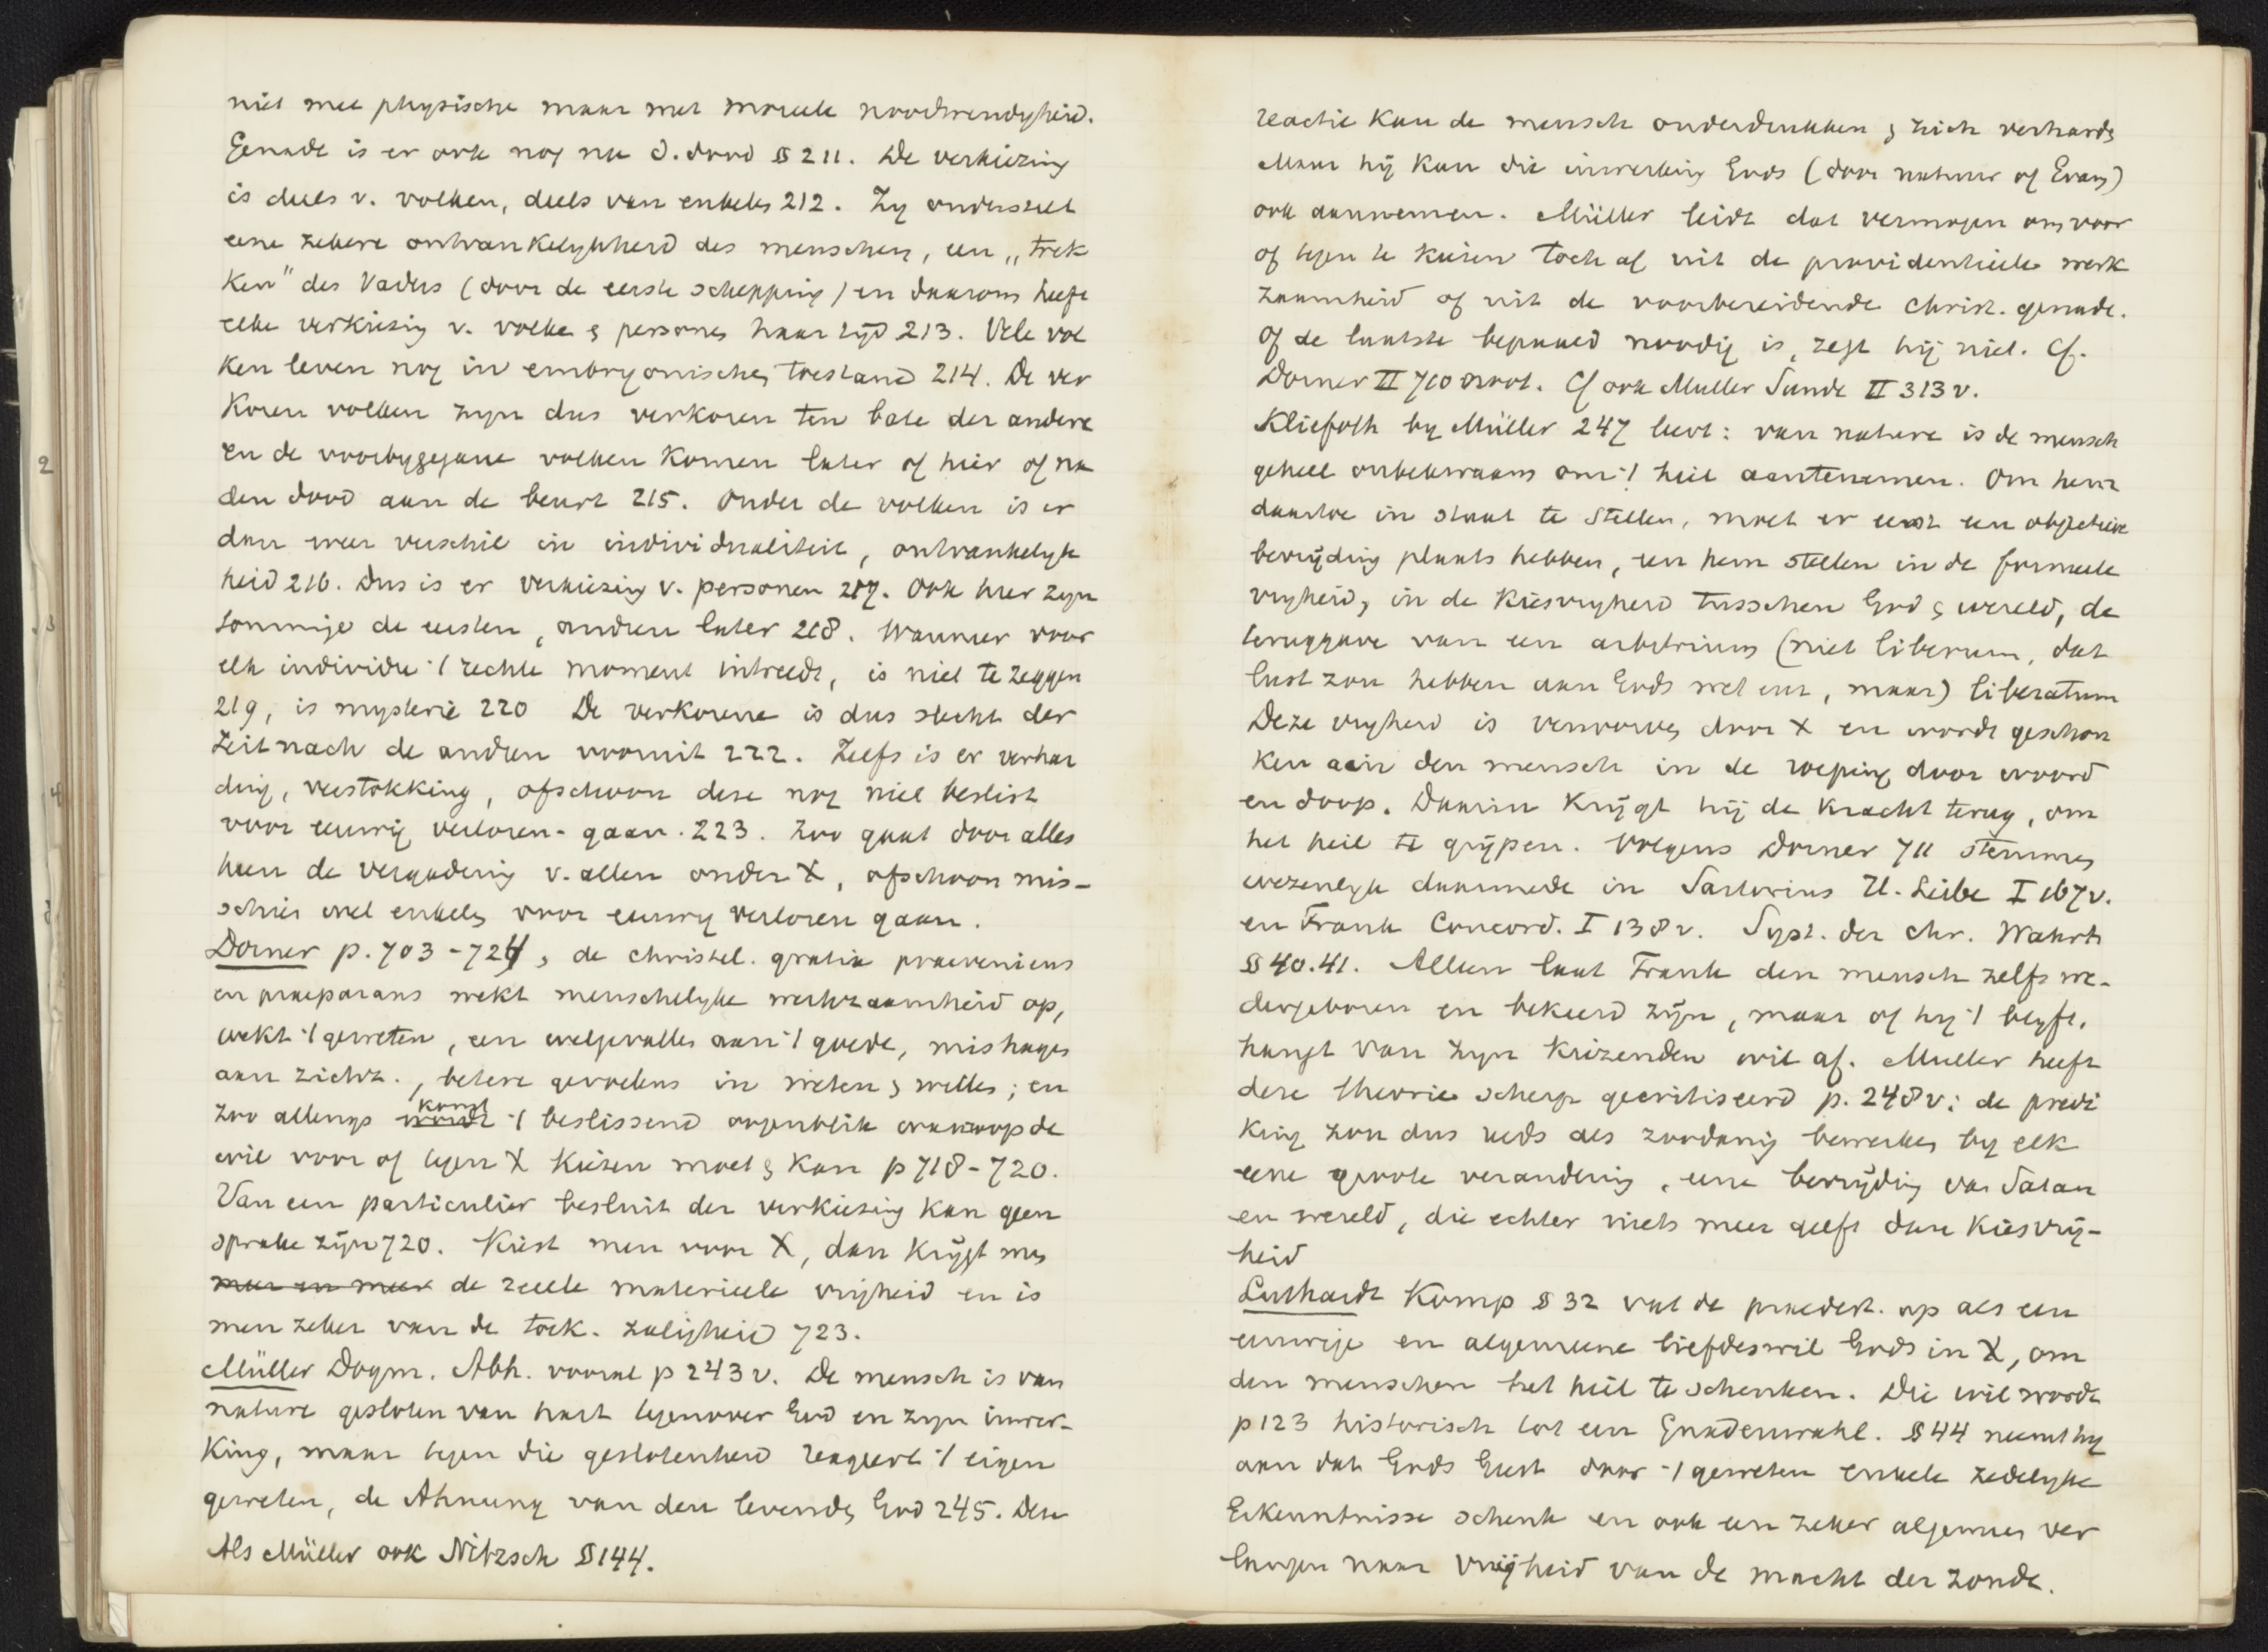 niet met physische maar met moreele noodwendigheid.
Genade is er ook nog na d. dood § 211. De verkiezing
is deels v. volken, deels van enkelen 212. Zy onderstelt
eene zekere ontvankelykheid des menschen, een „trek
ken" des Vaders (door de eerste schepping) en daarom heeft
elke verkiezing v. volken & personen haar tyd 213. Vele vol
ken leven nog in embryonischen toestand 214. De ver
koren volken zyn dus verkoren ten bate der andere
en de voorbygegane volken komen later of hier of na
den dood aan de beurt 215. Onder de volken is er
dan weer verschil in individualiteit, ontvankelyk
heid 216. Dus is er verkiezing v. personen 217. Ook hier zyn
sommige de eersten, anderen later 218. Wanneer voor
elk individu 't rechte moment intreedt, is niet te zeggen
219, is mysterie 220 De verkorene is dus slechts der
Zeit nach de anderen vooruit 222. Zelfs is er verhar
ding, verstokking, ofschoon deze nog niet beslist
voor eeuwig verloren-gaan. 223. Zoo gaat door alles
heen de vergadering v. allen onder X, ofschoon mis-
schien wel enkelen voor eeuwig verloren gaan.
Dorner p. 703-724, de christel. gratia praeveniens
en praeparans wekt menschelyke werkzaamheid op,
wekt 't geweten, een welgevallen aan 't goede, mishagen
aan zichz., betere gevoelens in weten & willen; en
zoo allengs komt 't beslissend oogenblik waarop de
wil voor of tegen X kiezen moet & kan p 718-720.
Van een particulier besluit der verkiezing kan geen
sprake zijn 720. Kiest men voor X, dan krijgt men
meer en meer de reëele materieele vrijheid en is
men zeker van de toek. zaligheid 723.
Müller Dogm. Abh. vooral p 243 v. De mensch is van
nature gesloten van hart tegenover God en zyn inwer-
king, maar tegen die geslotenheid reageert 't eigen
geweten, de Ahnung van den levenden God 245. Deze
Als Müller ook Nitzsch § 144.
reactie kan de mensch onderdrukken & zich verharden
Maar hij kan die inwerking Gods (door natuur of Evang)
ook aannemen. Müller leidt dat vermogen om voor
of tegen te kiezen toch af uit de providentieele werk
zaamheid of uit de voorbereidende christ. genade.
Of de laatste bepaald noodig is, zegt hij niet. Cf.
Dorner II 710 noot. Cf ook Muller Sunde II 313 v.
Kliefoth by Müller 247 leert: van nature is de mensch
geheel onbekwaam om 't heil aantenemen. Om hem
daartoe in staat te stellen, moet er eerst een objectieve
bevrijding plaats hebben, een hem stellen in de formeele
vryheid, in de kiesvryheid tusschen God & wereld, de
teruggave van een arbitrium (niet liberum, dat
lust zou hebben aan Gods wet enz, maar) liberatum
Deze vryheid is verworven door X en wordt geschon
ken aan den mensch in de roeping door woord
en doop. Daarin krijgt hij de kracht terug, om
het heil te grijpen. Volgens Dorner 711 stemmen
wezenlyk daarmede in Sartorius H. Liebe I 167 v.
en Frank Concord. I 138 v. Syst. der chr. Wahrh
§ 40.41. Alleen laat Frank den mensch zelfs we-
dergeboren en bekeerd zijn, maar of hy 't blyft,
hangt van zyn kiezenden wil af. Muller heeft
deze theorie scherp gecritiseerd p. 248 v: de predi
king zou dus reeds als zoodanig bewerken by elk
eene groote verandering, eene bevrijding van Satan
en wereld, die echter niets meer geeft dan kiesvrij-
heid
Luthardt Komp § 32 vat de praedest. op als een
eeuwige en algemeene liefdeswil Gods in X, om
den menschen het heil te schenken. Die wil wordt
p 123 historisch tot een Gnadenwahl. § 44 neemt hy
aan dat Gods Geest door 't geweten enkele zedelyke
Erkenntnisse schenk en ook een zeker algemeen ver
langen naar vrijheid van de macht der zonde.